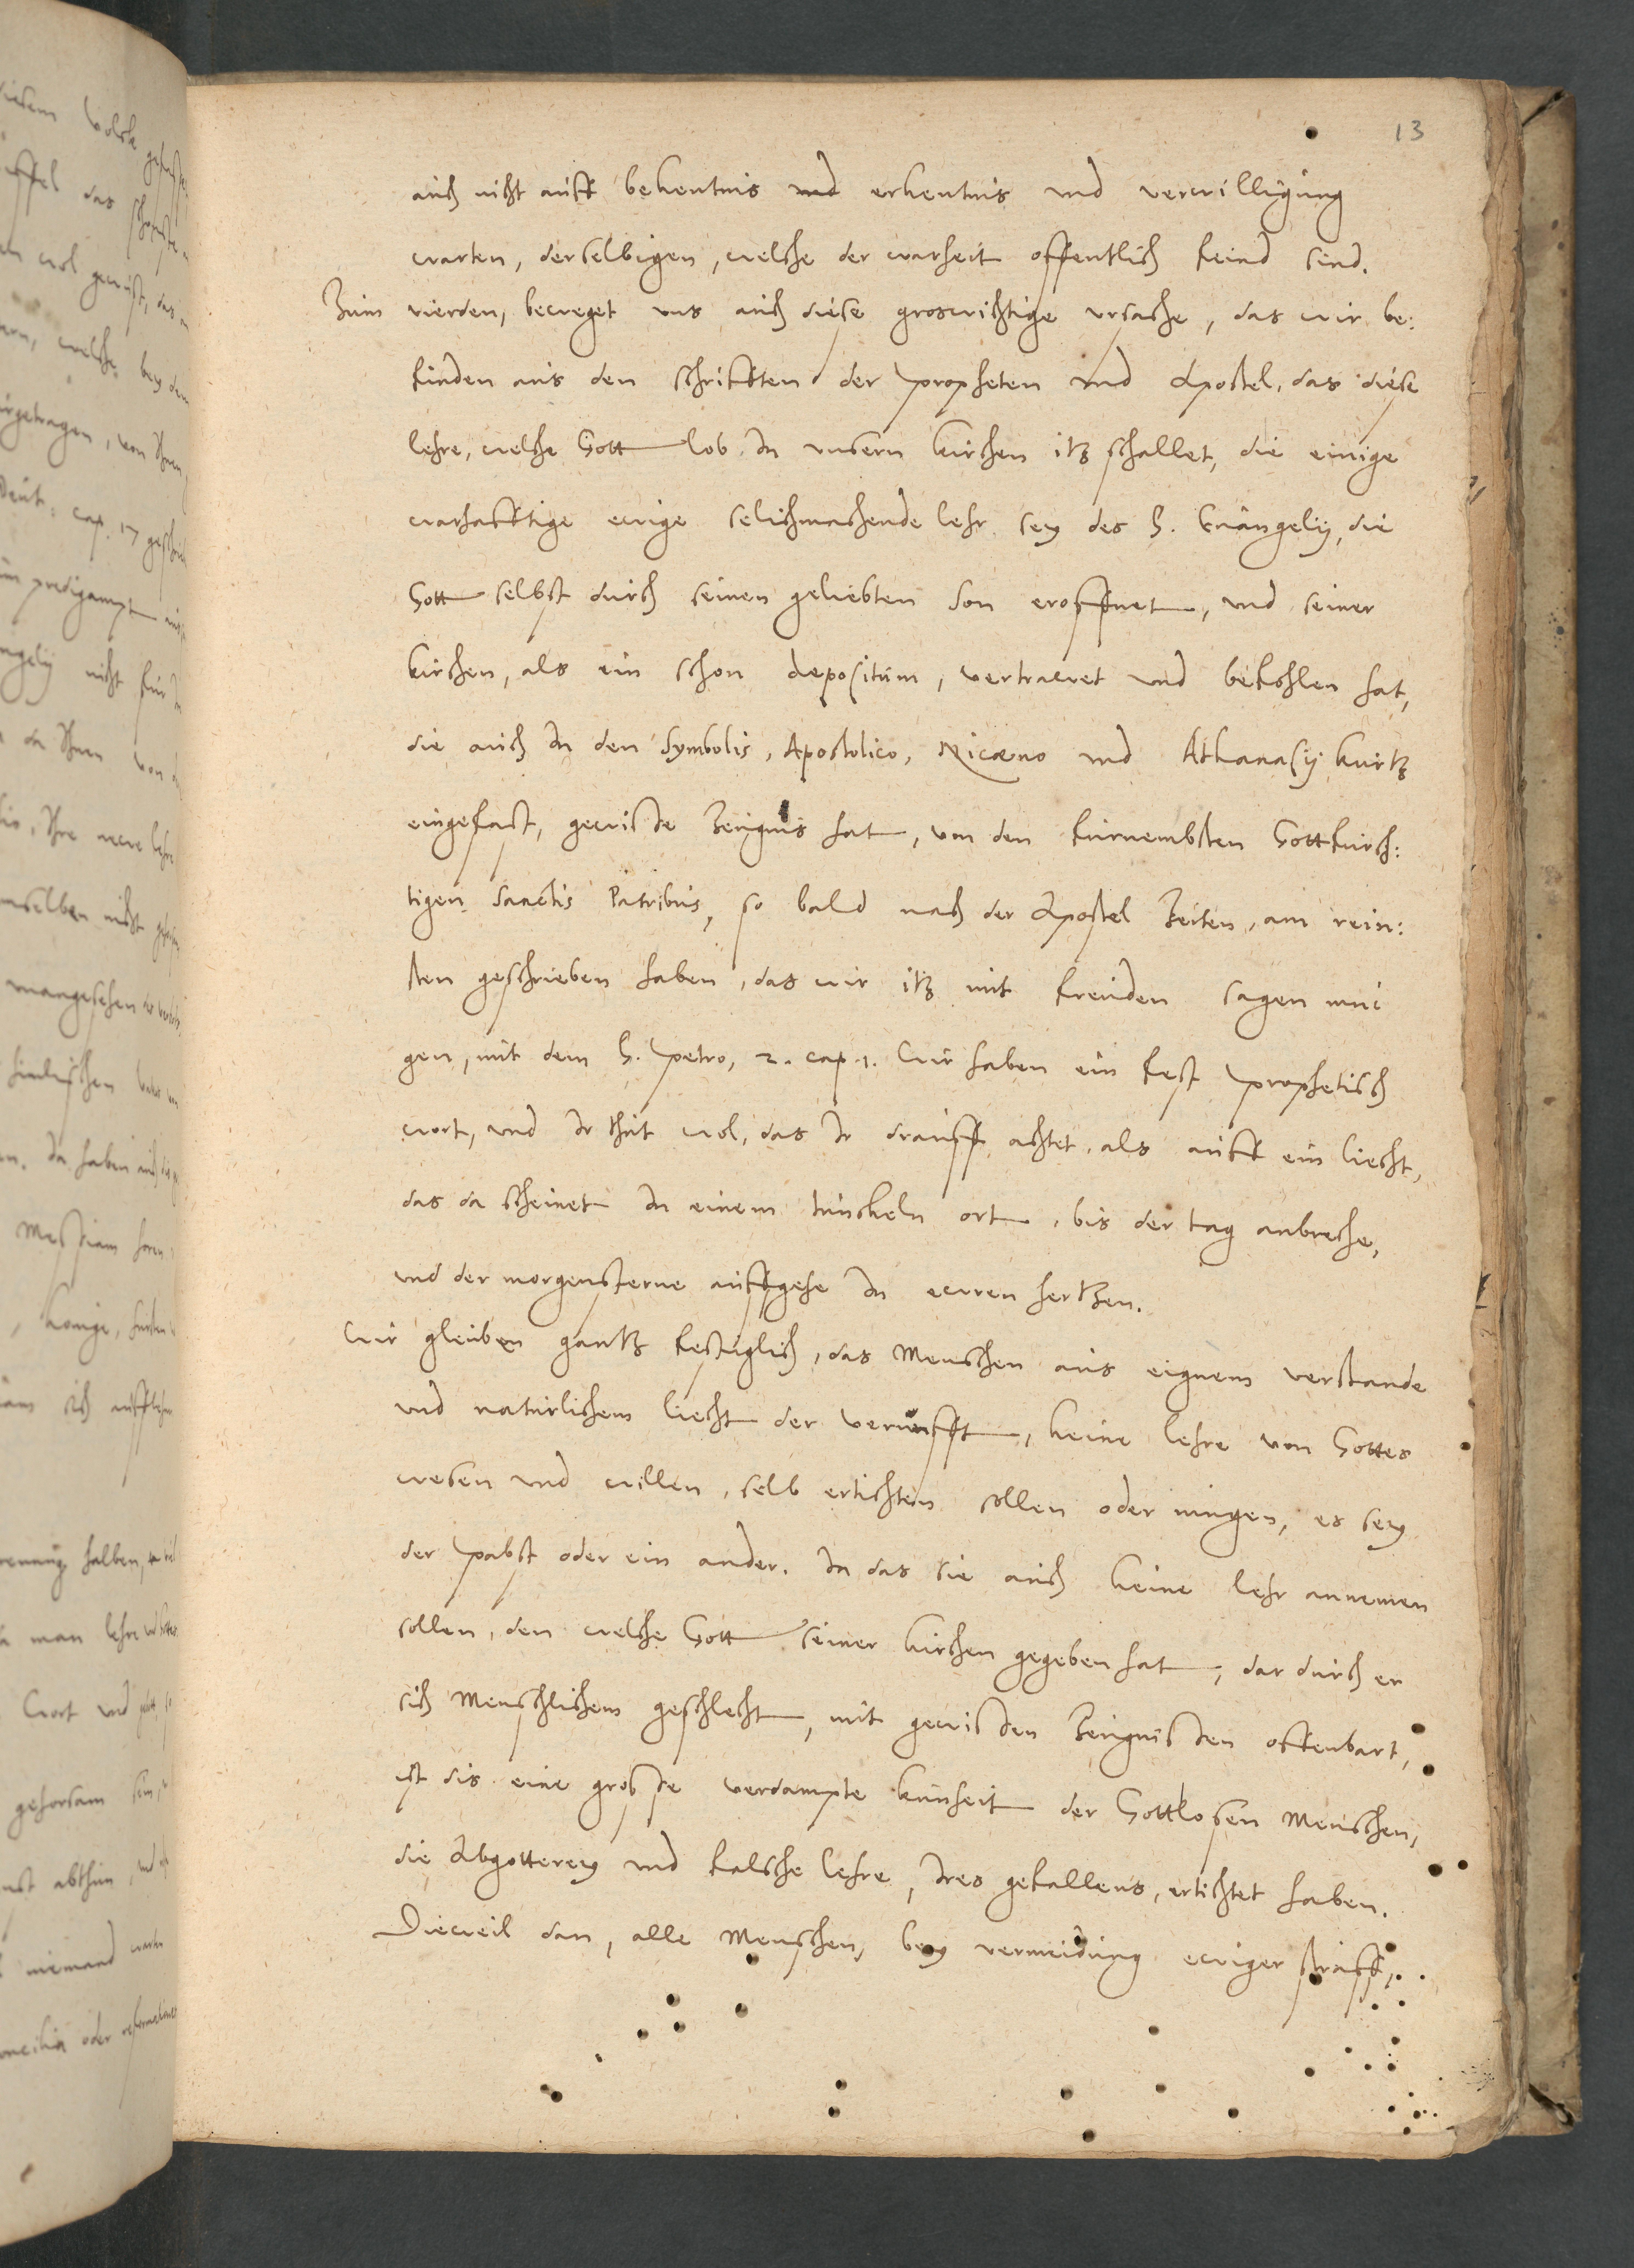 13
auch nicht auff bekentnis und erkentnis und verwilligung
warten, derselbigen, welche der warheit offentlich feind sind.
Zum vierden, beweget uns auch diese groswichtige ursache, das wir be:
finden aus den schrifften der propheten und Apostel, das diese
lehre, welche Gott lob In unsern kirchen itz schallet, die einige
warhafftige ewige selichmachende lehr sey des H. Euangelij, die
Gott selbst durch seinen geliebten Son eroffnet, und seiner
kirchen, als ein schon depositum, vertrawet und befohlen hat,
die auch In den Symbolis, Apostolico, Nicaeno und Athanasij kurtz
eingefast, gewisse Zeugnis hat, von den furnembsten Gottfurch:
tigen Sanctis Patribus, so bald nach der Apostel Zeiten, am rein:
sten geschrieben haben, das wir itz mit freuden sagen mu
gen, mit dem H. petro, 2. cap. 1. Wir haben ein fest prophetisch
wort, und Ir thut wol, das Ir drauff achtet, als auff ein liecht,
das da scheinet In einem tunckeln ort, bis der tag anbreche,
und der morgensterne auffgehe In ewren hertzen.
Wir gleuben gantz festiglich, das Menschen aus eignem verstande
und naturlichem liecht der vernunfft, keine lehre von Gottes
wesen und willen, selb ertichten sollen oder mugen, es sey
der pabst oder ein ander. Ia das sie auch keine lehr annemen
sollen, den welche Gott seiner kirchen gegeben hat, dar durch er
sich Menschlichem geschlecht, mit gewissen Zeugnissen offenbart,
ist dis eine grosse verdampte kunheit der Gottlosen Menschen,
die Abgotterey und falsche lehre, Ires gefallens, ertichtet haben.
Dieweil dan, alle Menschen, bey vermeidung ewiger straff,